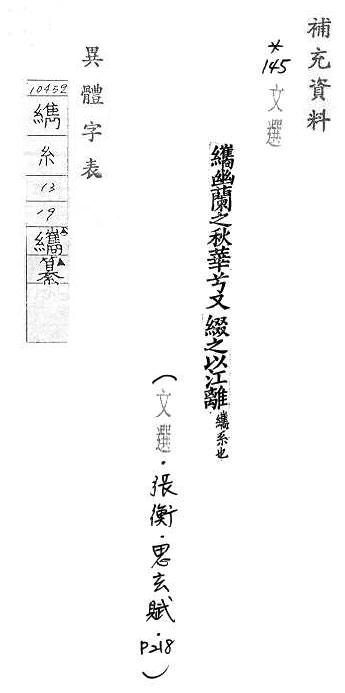 補充資料
*145 文選
纗幽蘭之秋華兮又綴之以江離 纗系也
(文選·張衡·思玄賦·P218)
異體字表
10452
繑
糸
13
19
纗▲
纂▲